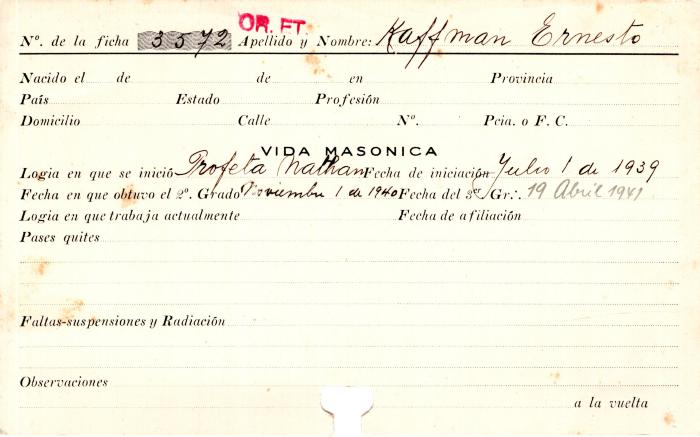 OR. FT.
Nº. de la ficha 3572 Apellido y Nombre: Kaffman Ernesto
Nacido el de de en Provincia
País Estado Profesión
Domicilio Calle Nº. Pcia. o F. C.
VIDA MASONICA
Logia en que se inició Profeta Nathan Fecha de iniciación Julio 1 de 1939
Fecha en que obtuvo el 2º. Grado Noviembre 1 de 1940 Fecha del 3er Gr∴ 19 Abril 1941
Logia en que trabaja actualmente Fecha de afiliación
Pases quites
Faltas-suspensiones y Radiación
Observaciones
a la vuelta